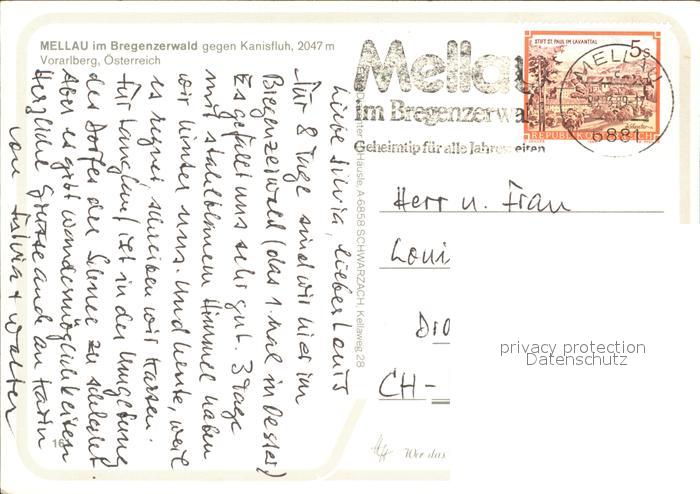 MELLAU im Bregenzerwald gegen Kanisfluh, 2047 m
Vorarlberg, Österreich
Liebe Silvia, lieber Louis
Für 8 Tage sind wir hier im
Bregenzerwald (das 1. mal in Oester.)
Es gefällt uns sehr gut. 3 Tage
mit stahlblauem Himmel haben
wir hinter uns. Und heute, weil
es regnet schreiben wir Karten.
Für Langlauf ist in der Umgebung
des Dorfes der Schnee zu schlecht.
Aber es gibt Wandermöglichkeiten
Herzliche Grüsse auch an Karin
von Fulvia + Walter
Häusle, A-6858 SCHWARZACH, Kellaweg 28
Mellau
im Bregenzerwald
Geheimtip für alle Jahreszeiten
STIFT ST. PAUL IM LAVANTTAL
5s
REPUBLIK ÖSTERREICH
MELLAU
6881
Herr u. Frau
Loui
Dro
CH-
privacy protection
Datenschutz
16
Wer das